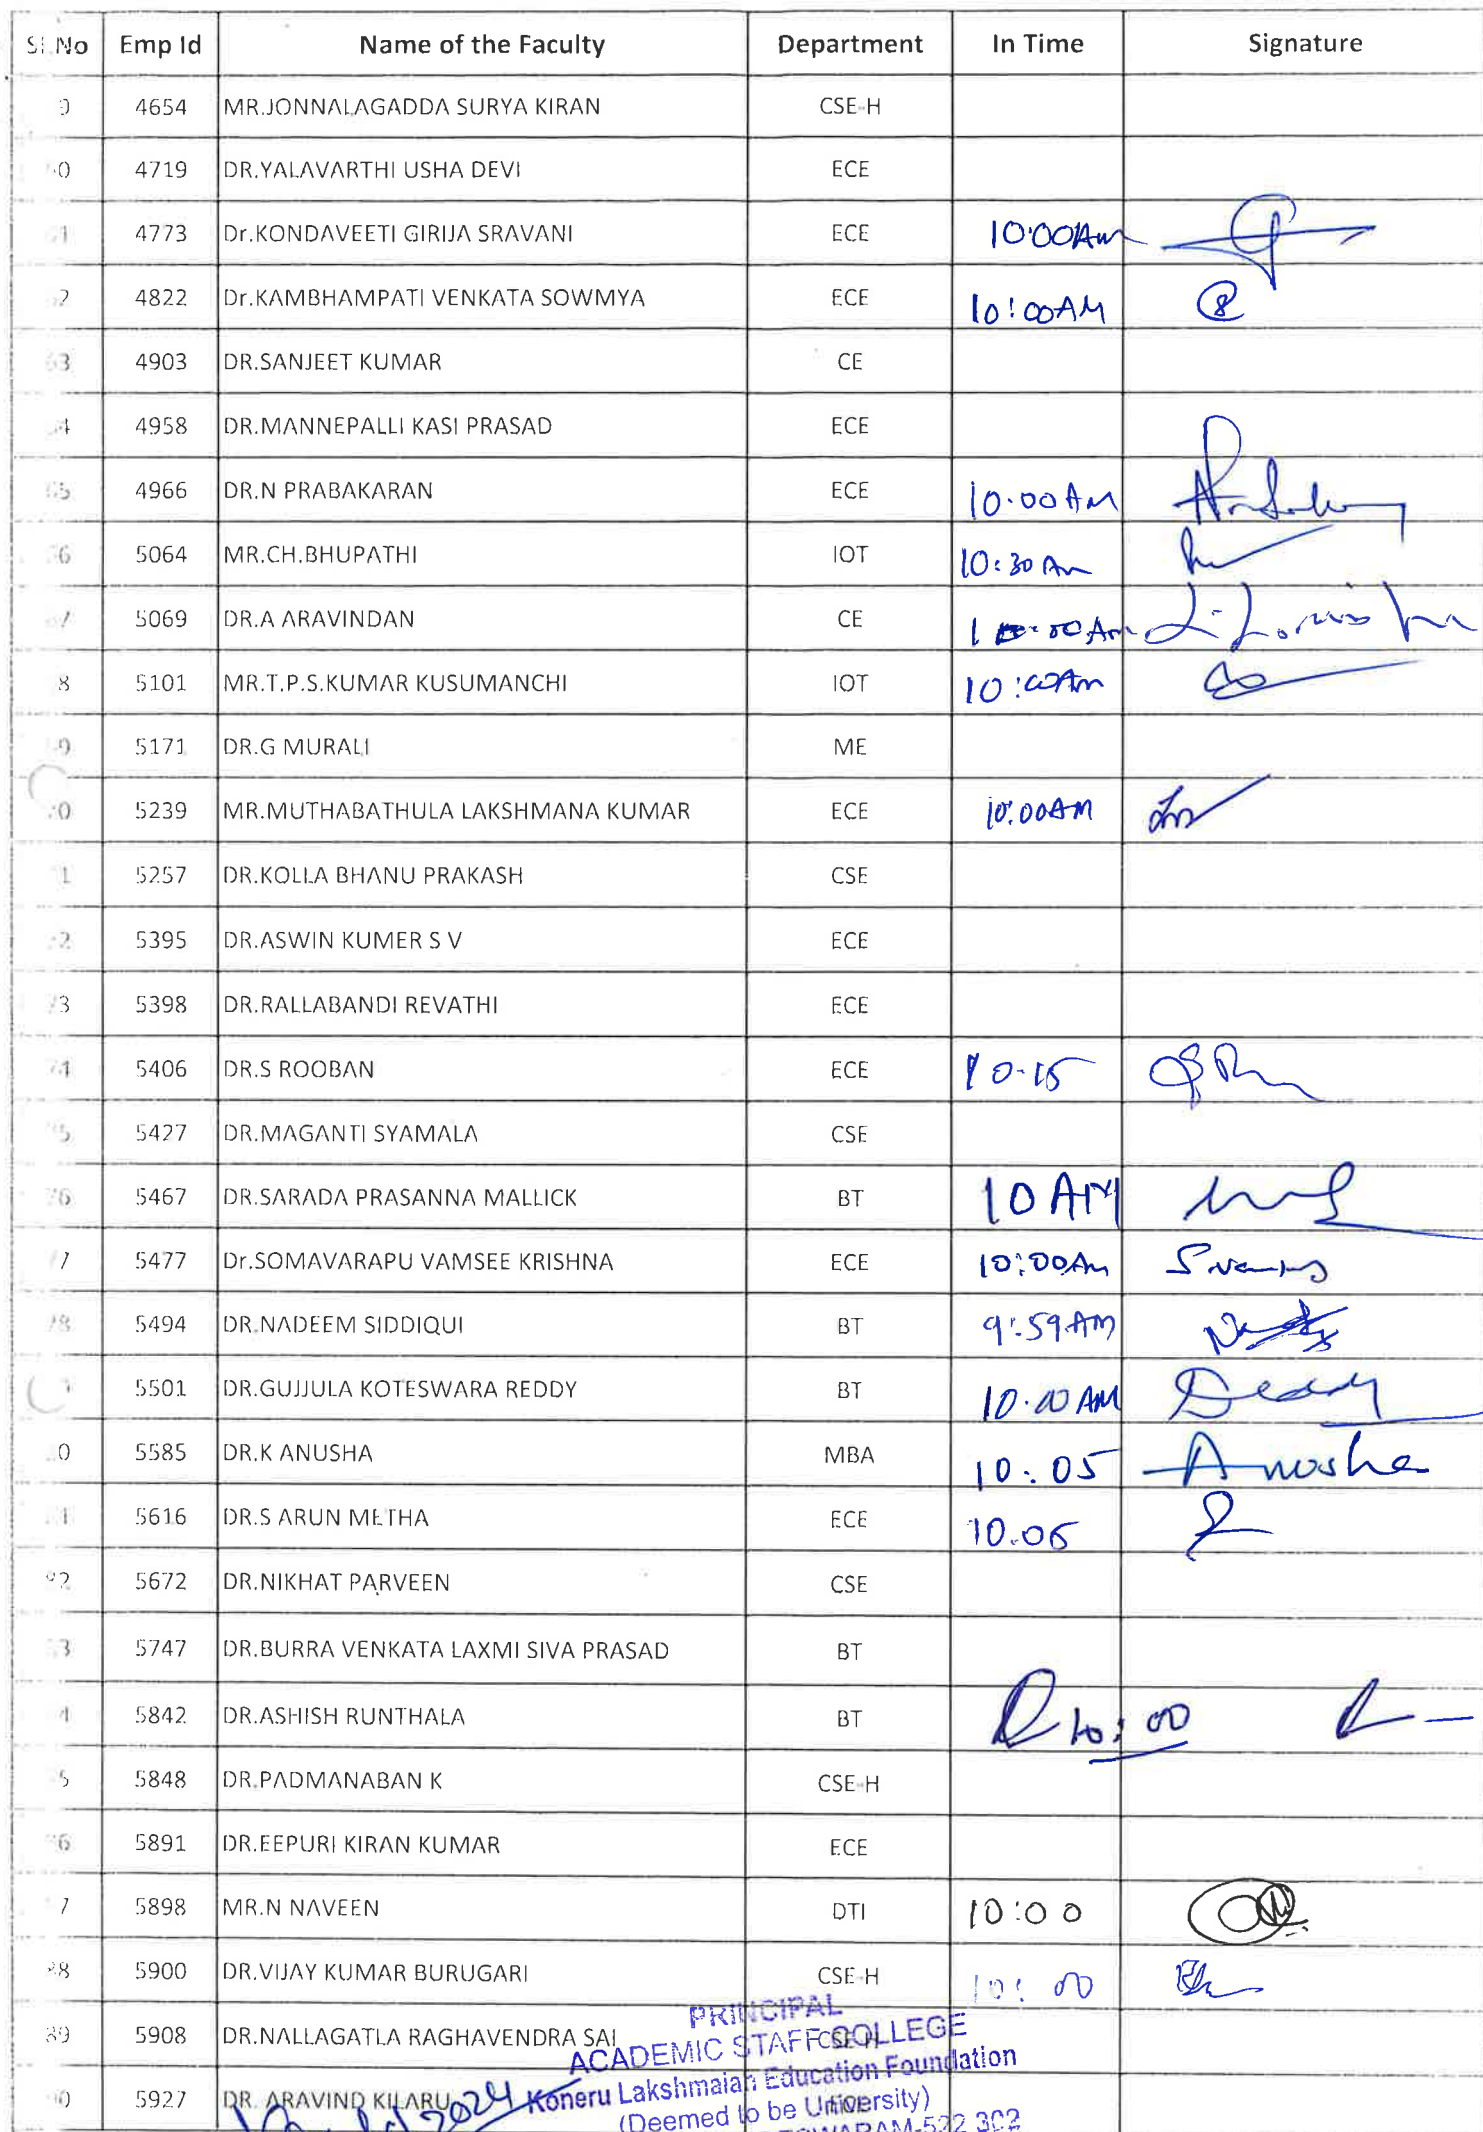 Sl.No Emp Id Name of the Faculty Department In Time Signature
4654 MR.JONNALAGADDA SURYA KIRAN CSE-H
4719 DR.YALAVARTHI USHA DEVI ECE
4773 Dr.KONDAVEETI GIRIJA SRAVANI ECE 10:00Am
4822 Dr.KAMBHAMPATI VENKATA SOWMYA ECE 10:00AM
63 4903 DR.SANJEET KUMAR CE
4958 DR.MANNEPALLI KASI PRASAD ECE
65 4966 DR.N PRABAKARAN ECE 10.00AM
5064 MR.CH.BHUPATHI IOT 10:30 Am
5069 DR.A ARAVINDAN CE
8 5101 MR.T.P.S.KUMAR KUSUMANCHI IOT 10:00Am
5171 DR.G MURALI ME
5239 MR.MUTHABATHULA LAKSHMANA KUMAR ECE 10:00AM
1 5257 DR.KOLLA BHANU PRAKASH CSE
5395 DR.ASWIN KUMER S V ECE
73 5398 DR.RALLABANDI REVATHI ECE
74 5406 DR.S ROOBAN ECE 10.15
5427 DR.MAGANTI SYAMALA CSE
76 5467 DR.SARADA PRASANNA MALLICK BT 10 AM
7 5477 Dr.SOMAVARAPU VAMSEE KRISHNA ECE 10:00Am
78 5494 DR.NADEEM SIDDIQUI BT 9:59AM
5501 DR.GUJJULA KOTESWARA REDDY BT 10.00 AM Reddy
0 5585 DR.K ANUSHA MBA 10:05 Anusha
5616 DR.S ARUN METHA ECE 10.05
82 5672 DR.NIKHAT PARVEEN CSE
5747 DR.BURRA VENKATA LAXMI SIVA PRASAD BT
5842 DR.ASHISH RUNTHALA BT 10:00
5 5848 DR.PADMANABAN K CSE-H
5891 DR.EEPURI KIRAN KUMAR ECE
7 5898 MR.N NAVEEN DTI 10:00
88 5900 DR.VIJAY KUMAR BURUGARI CSE-H 10:00
PRINCIPAL
89 5908 DR.NALLAGATLA RAGHAVENDRA SAI
ACADEMIC STAFF COLLEGE
Koneru Lakshmaiah Education Foundation
5927 DR. ARAVIND KILARU
2024
(Deemed to be University)
522 302